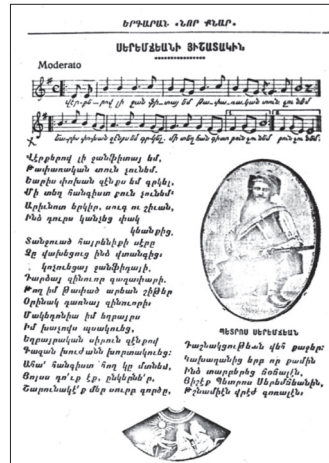 ԵՐԳԱՐԱՆ «ՆՈՐ ՔՆԱՐ»
ՍԵՐԵՄՃԵԱՆԻ ՅԻՇԱՏԱԿԻՆ
Moderato
Վէրքերով լի ջանֆիտայ եմ,
Թափառական տուն չունեմ.
Եարիս փոխան զէնքս եմ գրկել,
Մի տեղ հանգիստ քուն չունեմ։
Արիւնոտ երկիր, սուգ ու շիւան,
Ինձ դուրս կանչեց փակ
կեանքից.
Տանջուած հայրենիքի սէրը
Չը վախեցուց ինձ վտանգից։
կոչուեցայ ջանֆիդայի,
Դարձայ զինուոր գաղափարի.
Թող իմ թափած արեան շիթեր
Օրինակ դառնայ զինուորի։
Մակեդոնիա իմ եղբայրս
Իմ խաչովս պսակուեց,
Եղբայրական սիրուն զէնքով
Դազան խուժանն խորտակուեց։
Ահա՛ հանգիստ հող կը մտնեմ,
Յոյսս դո՛ւք էք, ընկերնե՛ր,
Շարունակէ՛ք մեր սուրբ գործը,
ՊԵՏՐՈՍ ՍԵՐԵՄՃԵԱՆ
Դաշնակցութեան վեհ քաջեր։
Կախաղանից երբ որ քամին
Ինձ տարրերեց ճօճալէն,
Յիշէք Պետրոս Սերեմճեանին,
Թշնամիէն վրէժ գոռալէն։